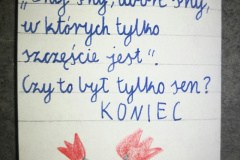 sny, dobre sny,
w których tylko
szczęście jest".
Czy to był tylko sen?
KONIEC